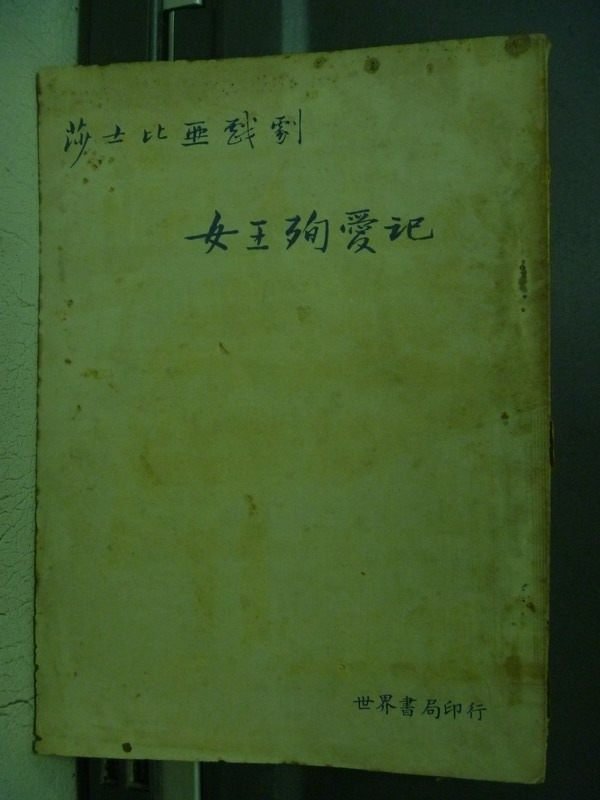 莎士比亞戲劇
女王殉愛記
世界書局印行